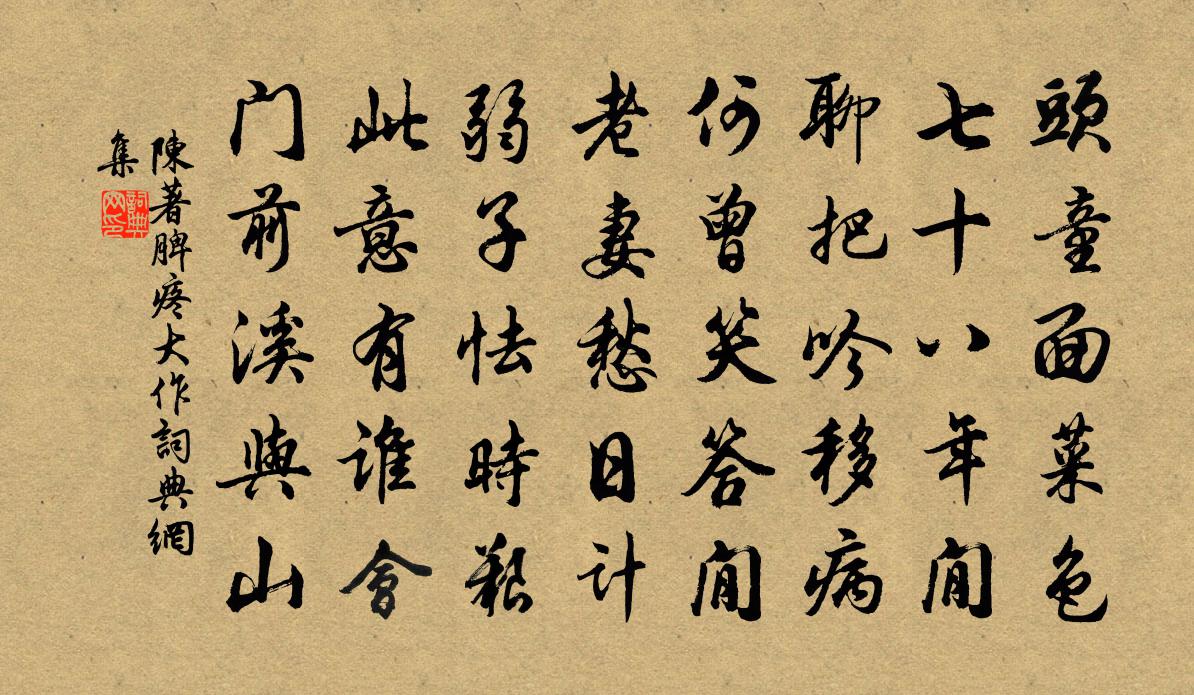 頭童面菜色
七十八年閒
聊把吟移病
何曾笑答閒
老妻愁日計
弱子怯時艱
此意有誰會
门前溪與山
陳著脾疼大作詞典網
集
詞典
网印